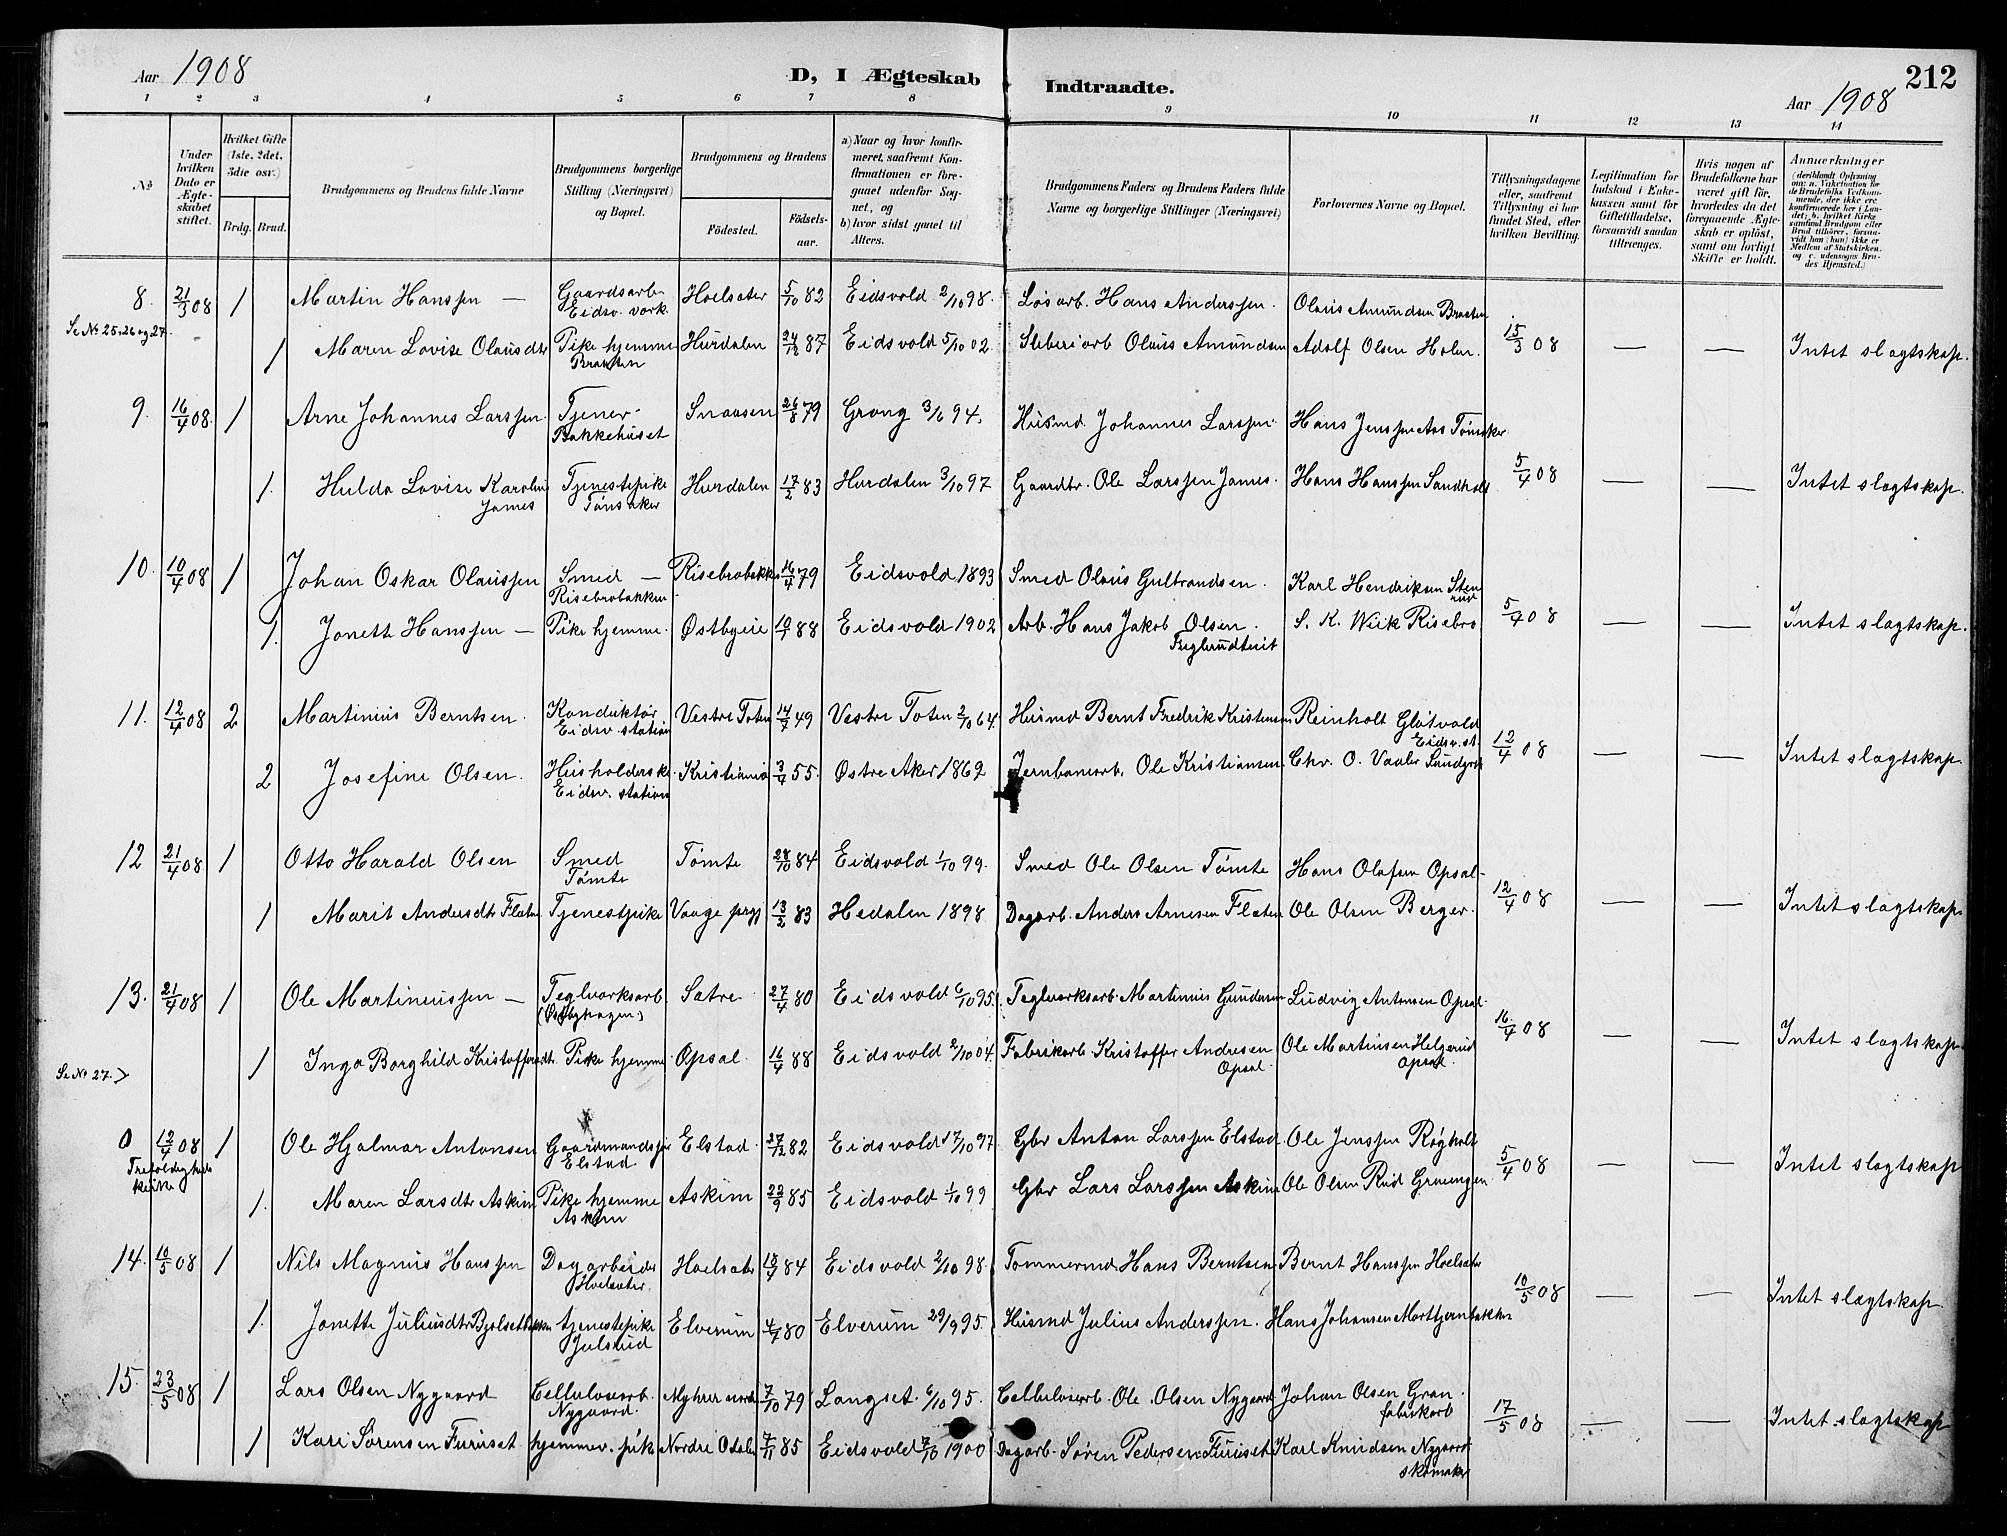 Aar 1908
D, I Ægteskab Indtraadte.
212
Aar 1908
1 2 3 4 5 6 7 8 9 10 11 12 13 14
No
Under hvilken Dato er Ægteskabet stiftet.
Hvilket Gifte (1ste, 2det, 3die osv.)
Brdg. Brud.
Brudgommens og Brudens fulde Navne
Brudgommens borgerlige Stilling (Næringsvei) og Bopæl.
Brudgommens og Brudens
Fødested.
Fødselsaar.
a) Naar og hvor konfirmeret, saafremt Konfirmationen er foregaaet udenfor Sognet, og
b) hvor sidst gaaet til Alters.
Brudgommens Faders og Brudens Faders fulde Navne og borgerlige Stillinger (Næringsvei)
Forlovernes Navne og Bopæl.
Tillysningsdagene eller, saafremt Tillysning ei har fundet Sted, efter hvilken Bevilling.
Legitimation for Indskud i Enkekassen samt for Giftetilladelse, forsaavidt saadan tiltrænges.
Hvis nogen af Brudefolkene har været gift før, hvorledes da det foregaaende Ægteskab er opløst, samt om lovligt Skifte er holdt.
Anmærkninger
(deriblandt Oplysning om: a. Vakcination for de Brudefolks Vedkommende, der ikke ere konfirmerede her i Landet; b. hvilket Kirkesamfund Brudgom eller Brud tilhører, forsaavidt han (hun) ikke er Medlem af Statskirken, og c. udensogns Brudes Hjemsted.)
8. 21/3 08 1 Martin Hanssen — Gaardsarb. Eidsv. værk Hoelsæter 5/10 82 Eidsvold 2/10 98. Løsarb. Hans Anderssen. Olaus Amundsen Braaten
Se No 25, 26 og 27.
1 Maren Lovise Olausdtr Pike hjemme Braaten Hurdalen 24/12 87 Eidsvold 5/10 02 Sliberiarb Olaus Amundsen Adolf Olsen Holm. 15/3 08 — — Intet slægtskap.
9. 16/4 08. 1 Arne Johannes Larssen. Tjener Bakkehuset Snaasen 26/8 79 Grong 3/6 94. Husmd. Johannes Larssen. Hans Jenssen Aas Tønsaker
1. Hulda Lovise Karoline James Tjenestepike Tønsaker Hurdalen 17/2 83 Hurdalen 3/10 97 Gaardbr. Ole Larssen James. Hans Hanssen Sandholt 5/4 08 — — Intet slægtskap.
10. 10/4 08 1 Johan Oskar Olaussen Smed — Risebrobakken Risebrobakken 16/4 79 Eidsvold 1893 Smed Olaus Gulbrandsen. Karl Hendriksen Stenrud
1. Jonette Hanssen — Pike hjemme. Østbyeie 10/7 88 Eidsvold 1902 Arb. Hans Jakob Olsen. S. K. Wiik Risebro 5/4 08 — — Intet slægtskap.
11. 12/4 08 2 Martinius Berntsen. Konduktør Eidsv. station Vestre Toten 14/7 49 Vestre Toten 2/10 64. Husmd Bernt Fredrik Kristensen Reinholt Glåtvold Eidsv. st.
2 Josefine Olsen. Husholderske Eidsv. station Kristiania 3/4 55. Østre Aker 1869 Jernbanearb. Ole Kristiansen Chr. O. Vaaler Sundgt. 12/4 08 — — Intet slægtskap.
12 21/4 08 1 Otto Harald Olsen Smed Tømte Tømte 28/10 84 Eidsvold 1/10 99. Smed Ole Olsen Tømte Hans Olafsen Opsal
1 Marit Andersdtr Flaten Tjenestpike Vaage prgj 13/2 83 Hedalen 1898 Dagarb. Anders Arnesen Flaten Ole Olsen Berger. 12/4 08 — — Intet slægtskap.
13. 21/4 08 1 Ole Martineussen — Teglværksarb. (Østbyhagen) Sætre 27/4 80 Eidsvold 6/10 95. Teglværksarb. Martinius Gundersen Ludvig Antonsen Opsal.
Se No 27. >
1 Inga Borghild Kristoffersdtr. Pike hjemme Opsal. 16/4 88 Eidsvold 2/10 04. Fabrikarb Kristoffer Andresen Opsal Ole Martinsen Helgerud Opsal 16/4 08 — — Intet slægtskap.
0 12/4 08 1 Ole Hjalmar Antonsen Gaardmandssøn Elstad Elstad 27/12 82 Eidsvold 17/10 97 Gbr Anton Larssen Elstad. Ole Jenssen Røgholt
Trefoldigheds kirke
1. Maren Larsdtr Askim Pike hjemme Askim Askim 22/9 85 Eidsvold 1/10 99 Gbr Lars Larssen Askim Ole Olsen Rud 5/4 08 — — Intet slægtskap
14. 10/5 08 1 Nils Magnus Hanssen Dagarbeider Hoelsæter. Hoelsæter 18/7 84 Eidsvold 2/10 98. Tømmermd. Hans Berntsen Bernt Hanssen Hoelsæter
1. Jonette Juliusdtr tjenestepike Julsrud Elverum 4/7 80 Elverum 29/9 95. Husmd Julius Anderssen. Hans Johansen 10/5 08 — — Intet slægtskap.
15. 23/5 08 1 Lars Olsen Nygaard Cellulosearb. Nygaard. Myhrer nordre 7/10 79 Langset. 6/10 95. Cellulosearb. Ole Olsen Nygaard Johan Olsen Gran. fabrikarb
1 Kari Sørensen Furuset hjemmev. pike Nordre Odalen 7/11 85 Eidsvold 7/10 1900 Dagarb. Søren Pedersen Furuset Karl Knudsen Nygaard skomaker 17/5 08 — — Intet slægtskap